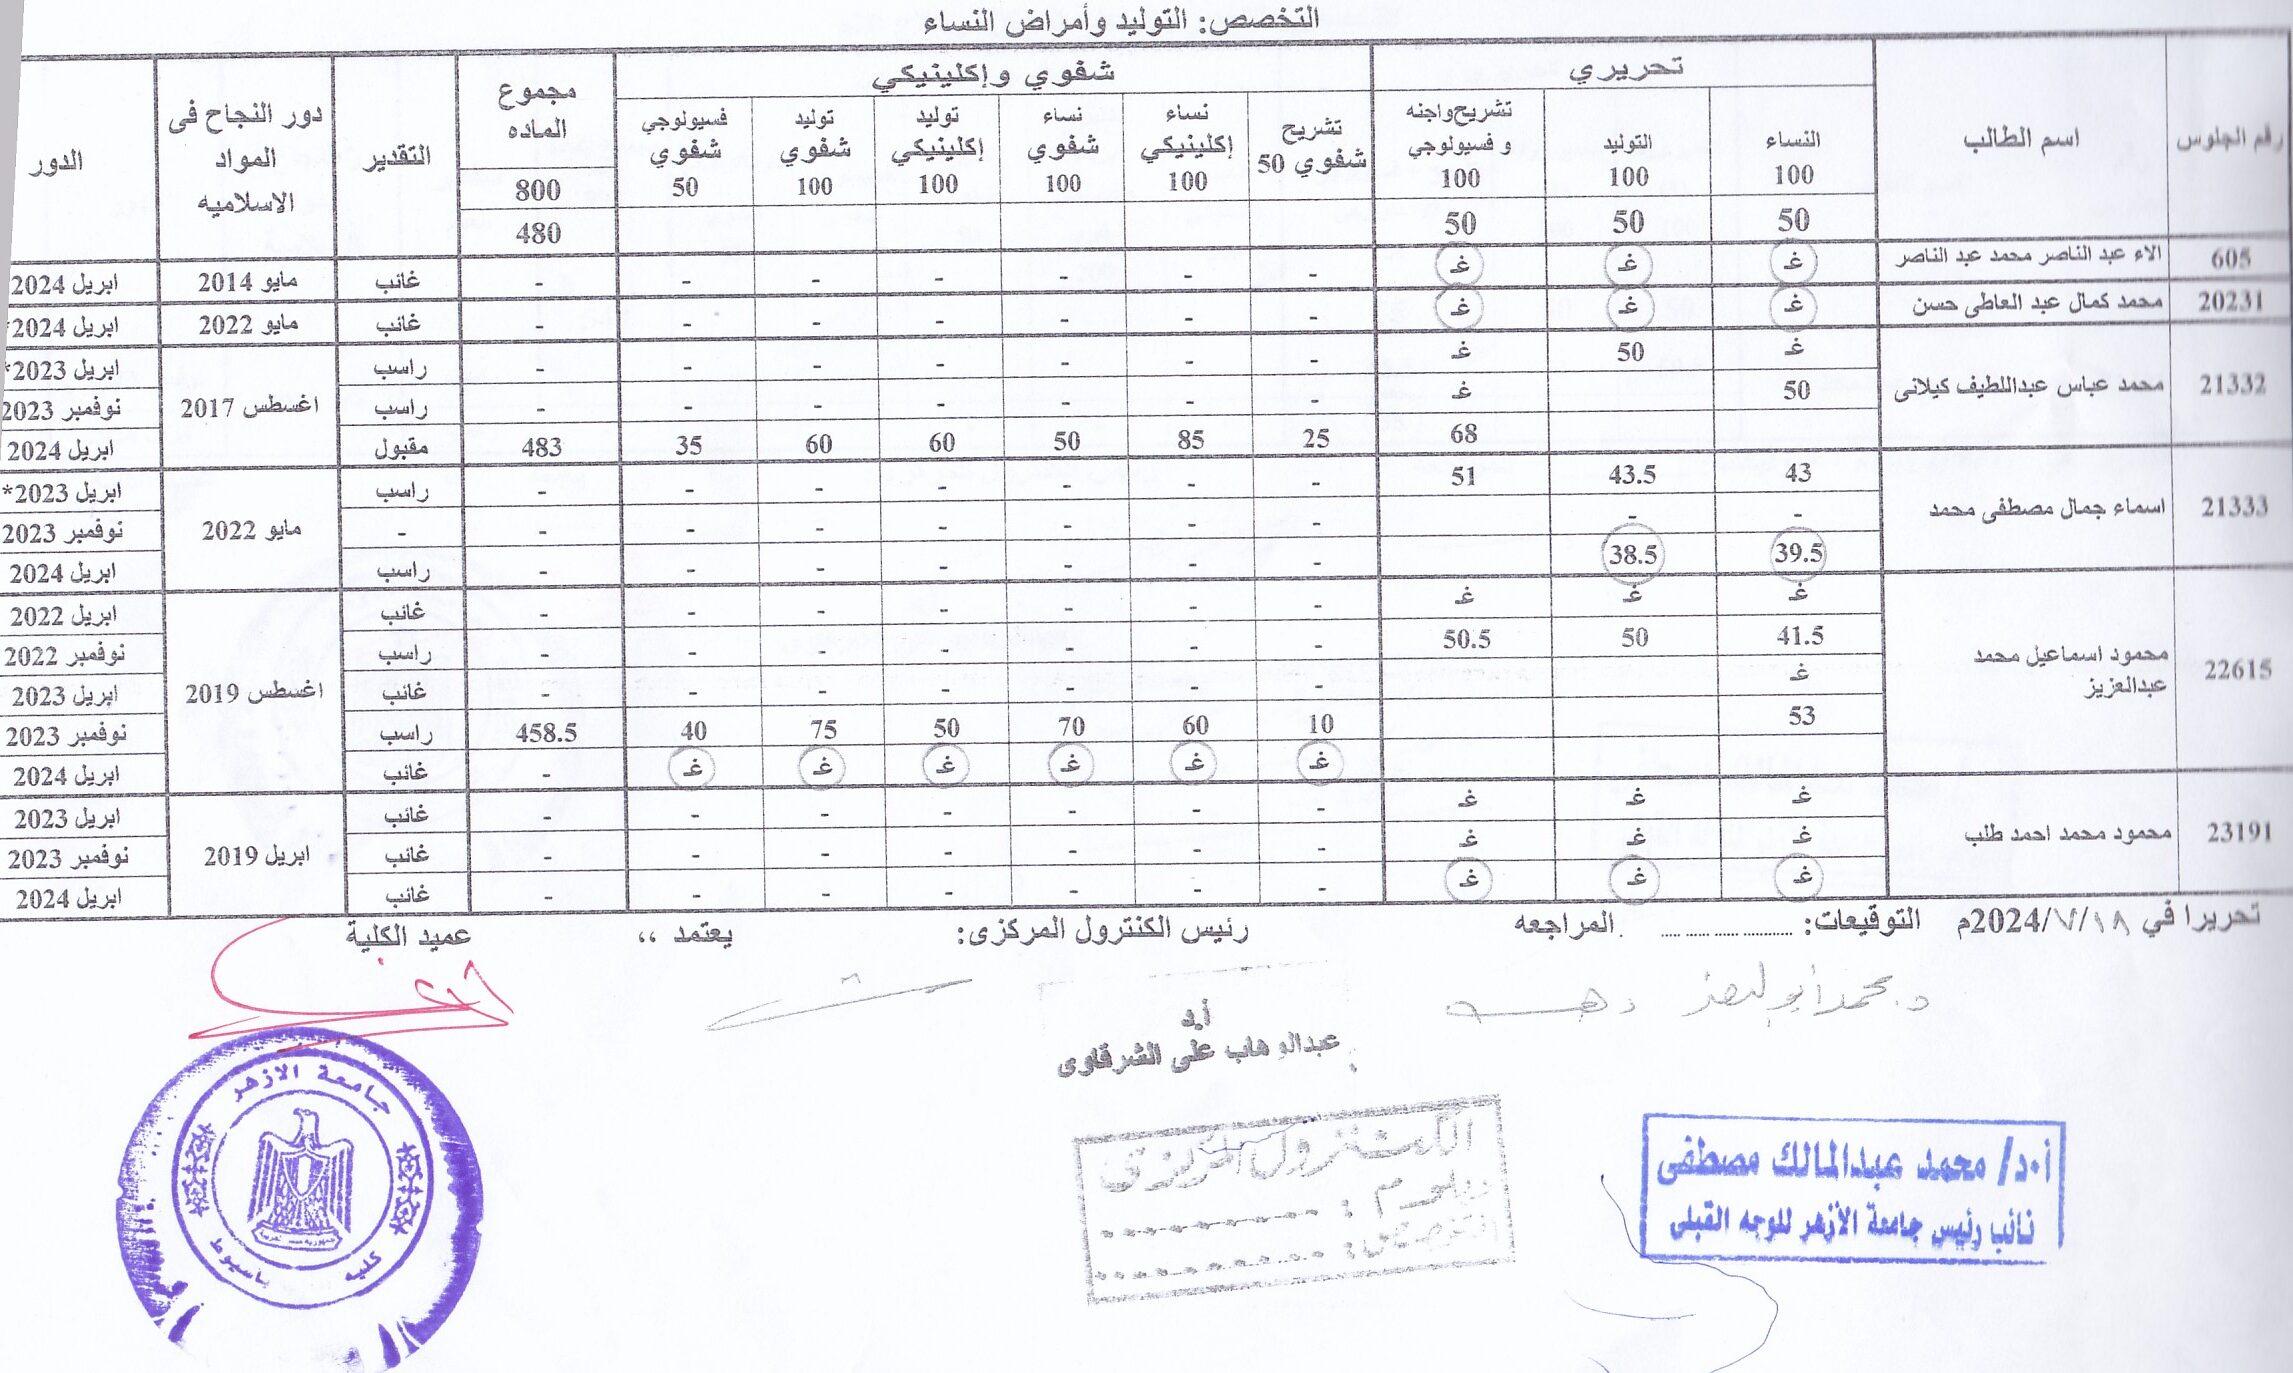 التخصص: التوليد وأمراض النساء
رقم الجلوس | اسم الطالب | تحريري | شفوي وإكلينيكي | مجموع الماده | التقدير | دور النجاح فى المواد الاسلاميه | الدور
النساء 100 | التوليد 100 | تشريح واجنه و فسيولوجي 100 | تشريح شفوي 50 | نساء إكلينيكي 100 | نساء شفوي 100 | توليد إكلينيكي 100 | توليد شفوي 100 | فسيولوجي شفوي 50 | 800
50 | 50 | 50 | 480
605 | الاء عبد الناصر محمد عبد الناصر | غـ | غـ | غـ | - | - | - | - | - | - | - | غائب | مايو 2014 | ابريل 2024
20231 | محمد كمال عبد العاطى حسن | غـ | غـ | غـ | - | - | - | - | - | - | - | غائب | مايو 2022 | ابريل 2024*
21332 | محمد عباس عبداللطيف كيلانى | غـ | 50 | غـ | - | - | - | - | - | - | - | راسب | اغسطس 2017 | ابريل 2023*
50 | غـ | - | - | - | - | - | - | - | راسب | نوفمبر 2023
68 | 25 | 85 | 50 | 60 | 60 | 35 | 483 | مقبول | ابريل 2024
21333 | اسماء جمال مصطفى محمد | 43 | 43.5 | 51 | - | - | - | - | - | - | - | راسب | مايو 2022 | ابريل 2023*
- | - | - | - | - | - | - | - | - | - | نوفمبر 2023
39.5 | 38.5 | - | - | - | - | - | - | - | راسب | ابريل 2024
22615 | محمود اسماعيل محمد عبدالعزيز | غـ | غـ | غـ | - | - | - | - | - | - | - | غائب | اغسطس 2019 | ابريل 2022
41.5 | 50 | 50.5 | - | - | - | - | - | - | - | راسب | نوفمبر 2022
غـ | - | - | - | - | - | - | - | غائب | ابريل 2023
53 | 10 | 60 | 70 | 50 | 75 | 40 | 458.5 | راسب | نوفمبر 2023
غـ | غـ | غـ | غـ | غـ | غـ | - | غائب | ابريل 2024
23191 | محمود محمد احمد طلب | غـ | غـ | غـ | - | - | - | - | - | - | - | غائب | ابريل 2019 | ابريل 2023
غـ | غـ | غـ | - | - | - | - | - | - | - | غائب | نوفمبر 2023
غـ | غـ | غـ | - | - | - | - | - | - | - | غائب | ابريل 2024
تحريرا في ١٨/٧/2024م التوقيعات: ............ المراجعه رئيس الكنترول المركزى: يعتمد ،، عميد الكلية
أ.د
عبدالوهاب على الشرقاوى
الكنترول المركزى
دبلوم : ..........
التخصص : ..........
أ.د/ محمد عبدالمالك مصطفى
نائب رئيس جامعة الأزهر للوجه القبلى
جامعة الازهر
كلية
باسيوط